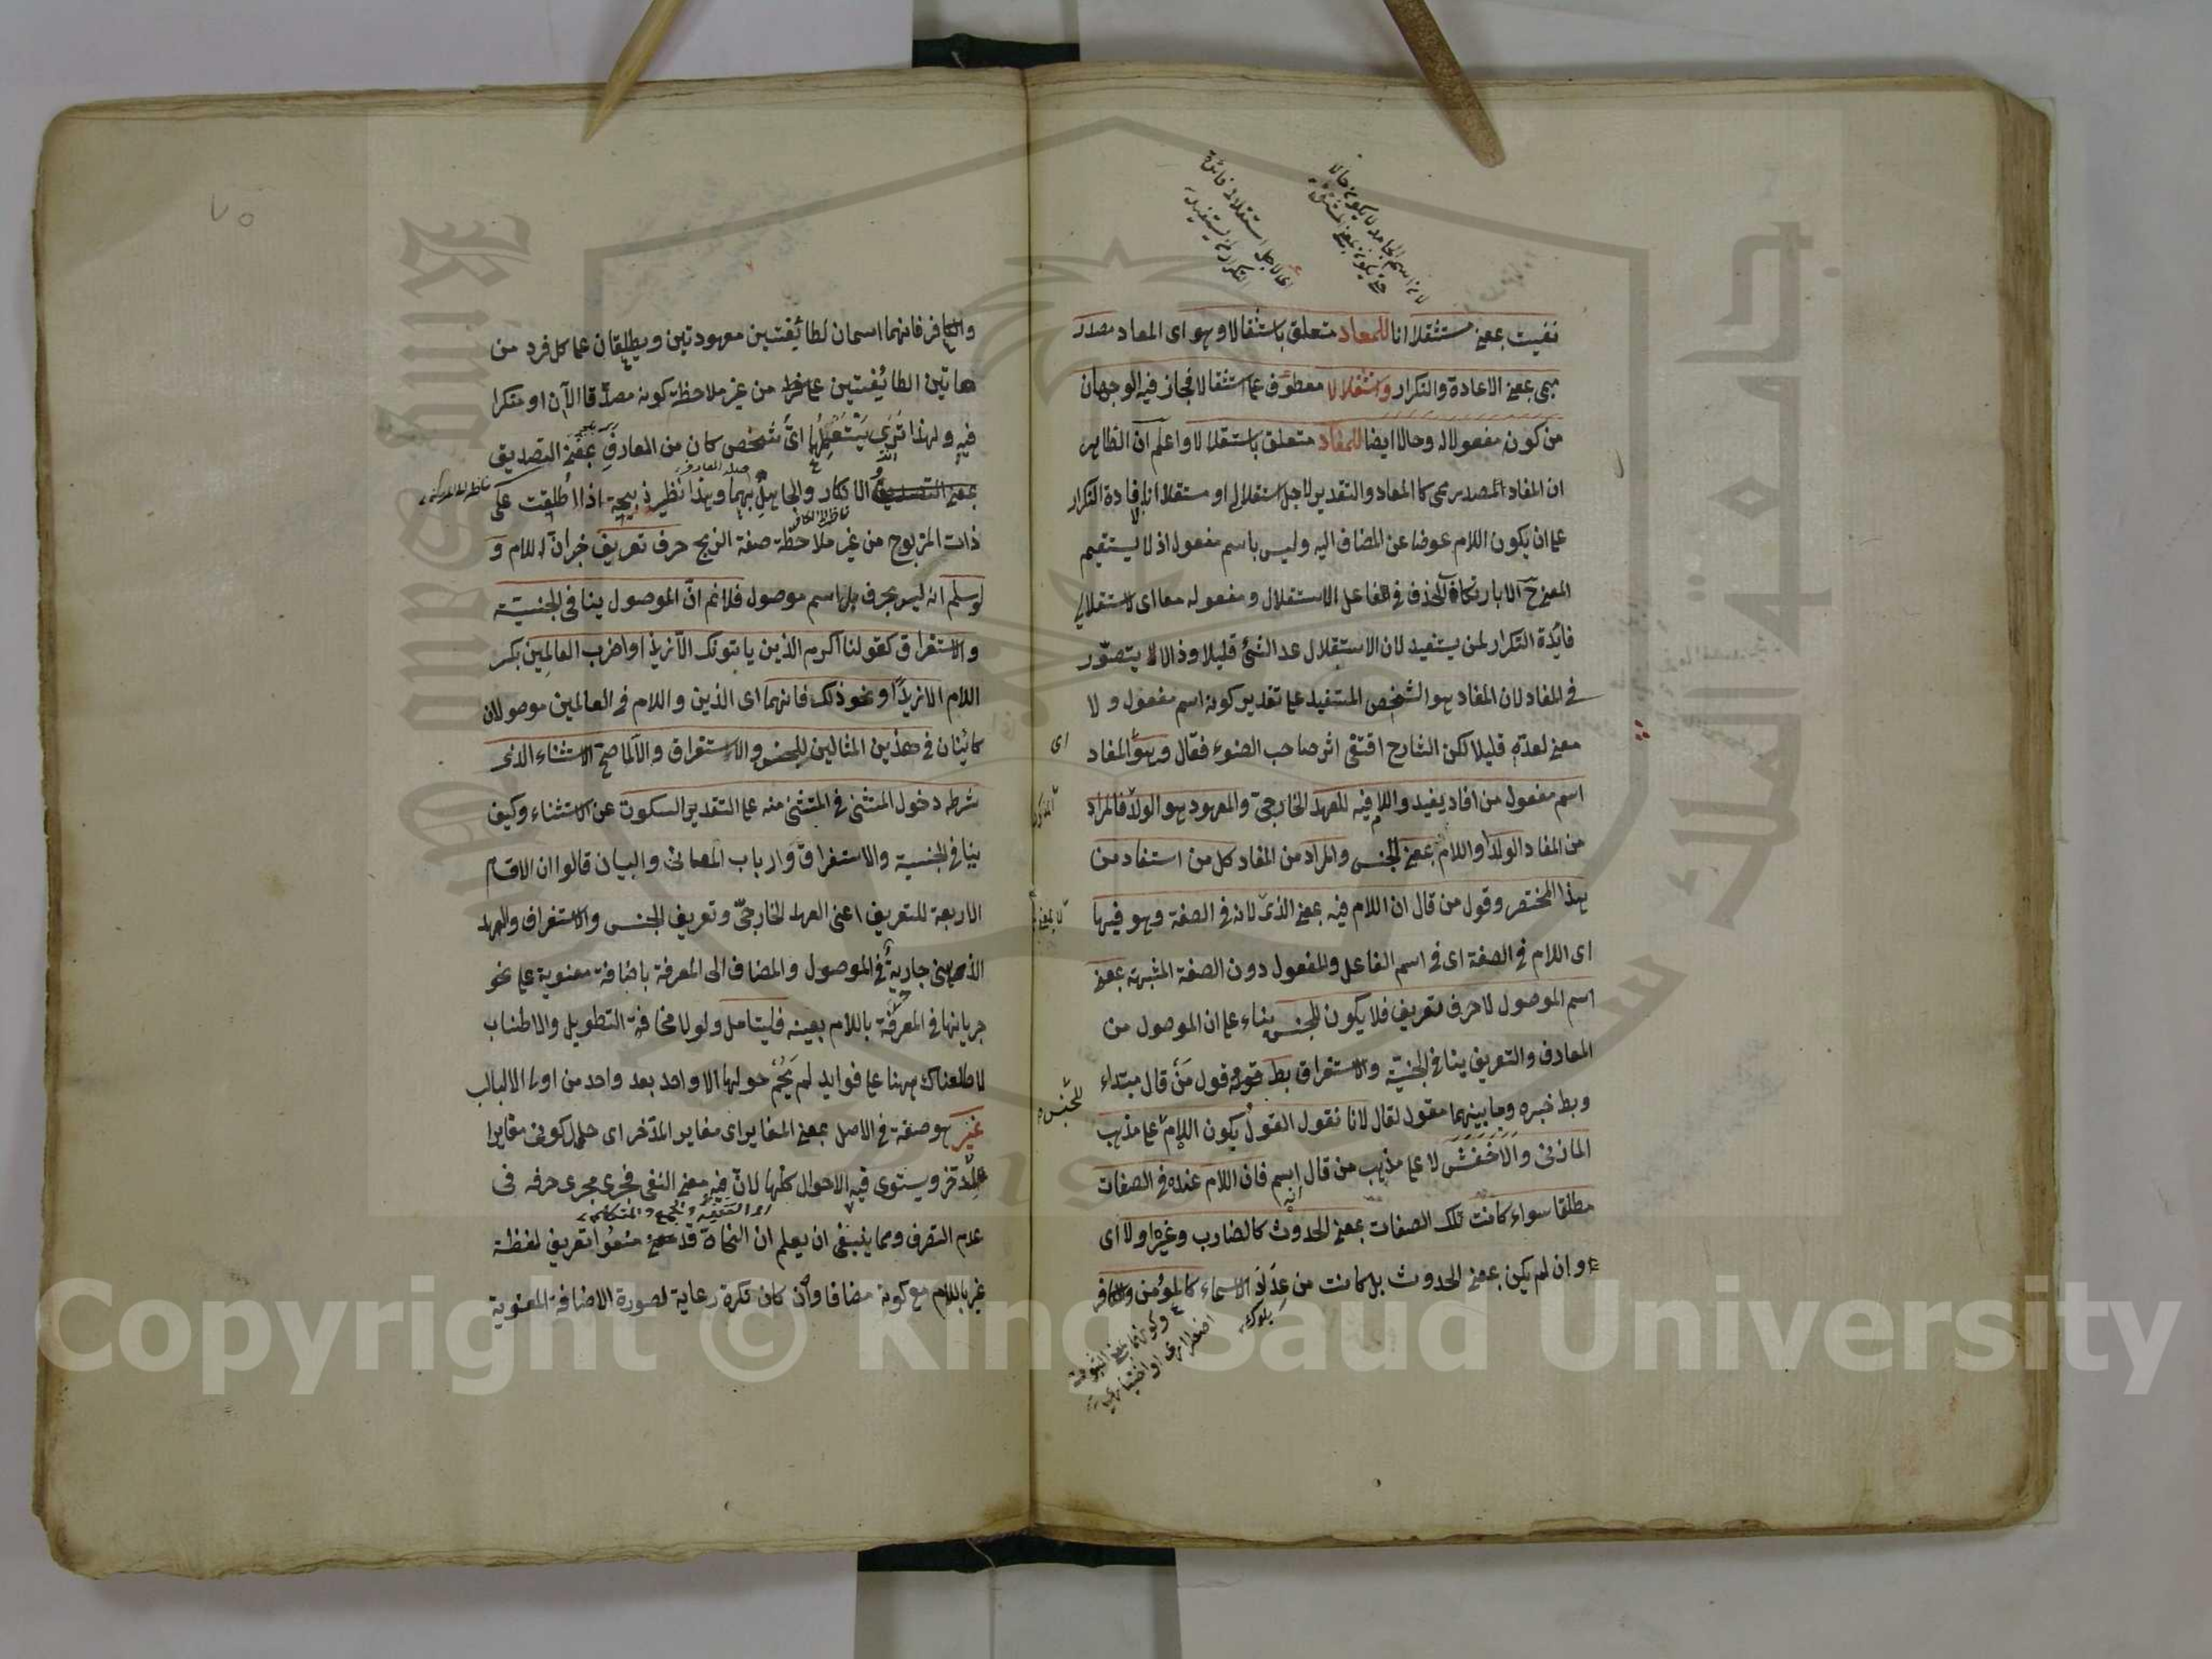 نفيت بمعنى مستثقلا انا للمعاد متعلق باستثقالا وهو اى المعاد مصدر
ميمى بمعنى الاعادة والتكرار واستقلالا معطوف على استثقالا فجاز فيه الوجهان
من كون مفعولا له وحالا ايضا للمفاد متعلق باستقلالا واعلم ان الظاهر
ان المفاد المصدر ميمى كالمعاد والتقدير لاجل استقلالى او مستقلا انا لافادة التكرار
على ان يكون اللام عوضا عن المضاف اليه وليس باسم مفعول اذ لا يستقيم
المعنى ح الا بارتكاب الحذف فى الفاعل الاستقلال ومفعوله معا اى لاستقلالى
فائدة التكرار لمن يستفيد لان الاستقلال عد الشئ قليلا وذا لا يتصور
فى المفاد لان المفاد هو الشخص المستفيد على تقدير كونه اسم مفعول ولا
معنى لعده قليلا لكن الشارح اقتفى اثر صاحب الضوء فقال وهو المفاد
اى
اسم مفعول من افاد يفيد واللام فيه للعهد الخارجى والمعهود هو الولد فالمراد
من المفاد الولد او اللام بمعنى الجنس والمراد من المفاد كل من استفاد من
هذا المختصر وقول من قال ان اللام فيه بمعنى الذى لانه فى الصفة وهو فيها
اى اللام فى الصفة اى فى اسم الفاعل والمفعول دون الصفة المشبهة بمعنى
اسم الموصول لا حرف تعريف فلا يكون للجنس بناء على ان الموصول من
المعارف والتعريف ينافى الجنسية والاستغراق بط قوله قول من قال مبتداء
للجنس
وبط خبره وما بينهما مقول لقال لانا نقول القول يكون اللام على مذهب
المازنى والاخفش لا على مذهب من قال اسم فان اللام عنده فى الصفات
مطلقا سواء كانت تلك الصفات بمعنى الحدوث كالضارب وغيره اولا اى
وان لم يكن بمعنى الحدوث بل كانت من عداد الاسماء كالمؤمن والكافر
٧٥
والكافر فانهما اسمان لطائفتين معهودتين ويطلقان على كل فرد من
هاتين الطائفتين من غير ملاحظة كونه مصدقا الآن او منكرا
فيه ولهذا ترى يستعملها اى شخص كان من المعارف بمعنى التصديق
الانكار والجاهل بهما وهذا نظير ذبيحة اذا اطلقت على
ذات المذبوح من غير ملاحظة صفة الذبح حرف تعريف خبر ان اللام و
لو سلم انه ليس بحرف بل اسم موصول فلا نم ان الموصول ينافى الجنسية
والاستغراق كقولنا اكرم الذين ياتونك الا زيدا واضرب العالمين بكسر
اللام الا زيدا ونحو ذلك فانهما اى الذين واللام فى العالمين موصولان
كائنان فى هذين المثالين للجنس والاستغراق والا لما صح الاستثناء الذى
شرطه دخول المستثنى فى المستثنى منه على التقدير السكوت عن الاستثناء وكيف
ينافى الجنسية والاستغراق وارباب المعانى والبيان قالوا ان الاقسام
الاربعة للتعريف اعنى العهد الخارجى وتعريف الجنس والاستغراق والعهد
الذهنى جارية فى الموصول والمضاف الى المعرفة باضافة معنوية على نحو
جريانها فى المعرفة باللام بعينه فليتامل ولولا مخافة التطويل والاطناب
لاطلعناك ههنا على فوايد لم يحم حولها الا واحد بعد واحد من اولى الالباب
غير هو صفة فى الاصل بمعنى المغاير اى مغاير المدخر اى حال كونى مغايرا
للمدخر ويستوى فيه الاحوال كلها لان فيه معنى النفى فجرى مجرى حرفه فى
عدم التصرف ومما ينبغى ان يعلم ان النحاة قد منعوا تعريف لفظة
غير باللام مع كونه مضافا وان كان نكرة رعاية لصورة الاضافة المعنوية
Copyright © King Saud University